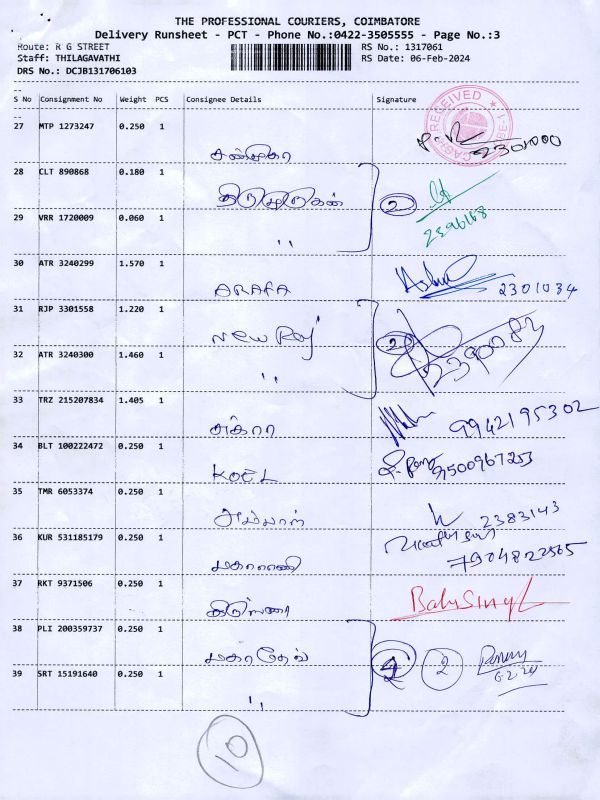 THE PROFESSIONAL COURIERS, COIMBATORE
Delivery Runsheet - PCT - Phone No.:0422-3505555 - Page No.:3
Route: R G STREET RS No.: 1317061
Staff: THILAGAVATHI RS Date: 06-Feb-2024
DRS No.: DCJB131706103
S No Consignment No Weight PCS Consignee Details Signature
RECEIVED
27 MTP 1273247 0.250 1
2301000
28 CLT 890868 0.180 1 திருமுருகன் 2
29 VRR 1720009 0.060 1 "
2396168
30 ATR 3240299 1.570 1 ARAFA 2301034
31 RJP 3301558 1.220 1 New Raj 2
32 ATR 3240300 1.460 1 "
2390082
33 TRZ 215207834 1.405 1 9942195302
34 BLT 100222472 0.250 1 KOEL 9500967253
35 TMR 6053374 0.250 1 அம்பாள் 2383143
36 KUR 531185179 0.250 1 மகாராணி 7904822565
37 RKT 9371506 0.250 1 Baby Singh
38 PLI 200359737 0.250 1 மகாதேவ் 2 2
6.2.24
39 SRT 15191640 0.250 1 "
10